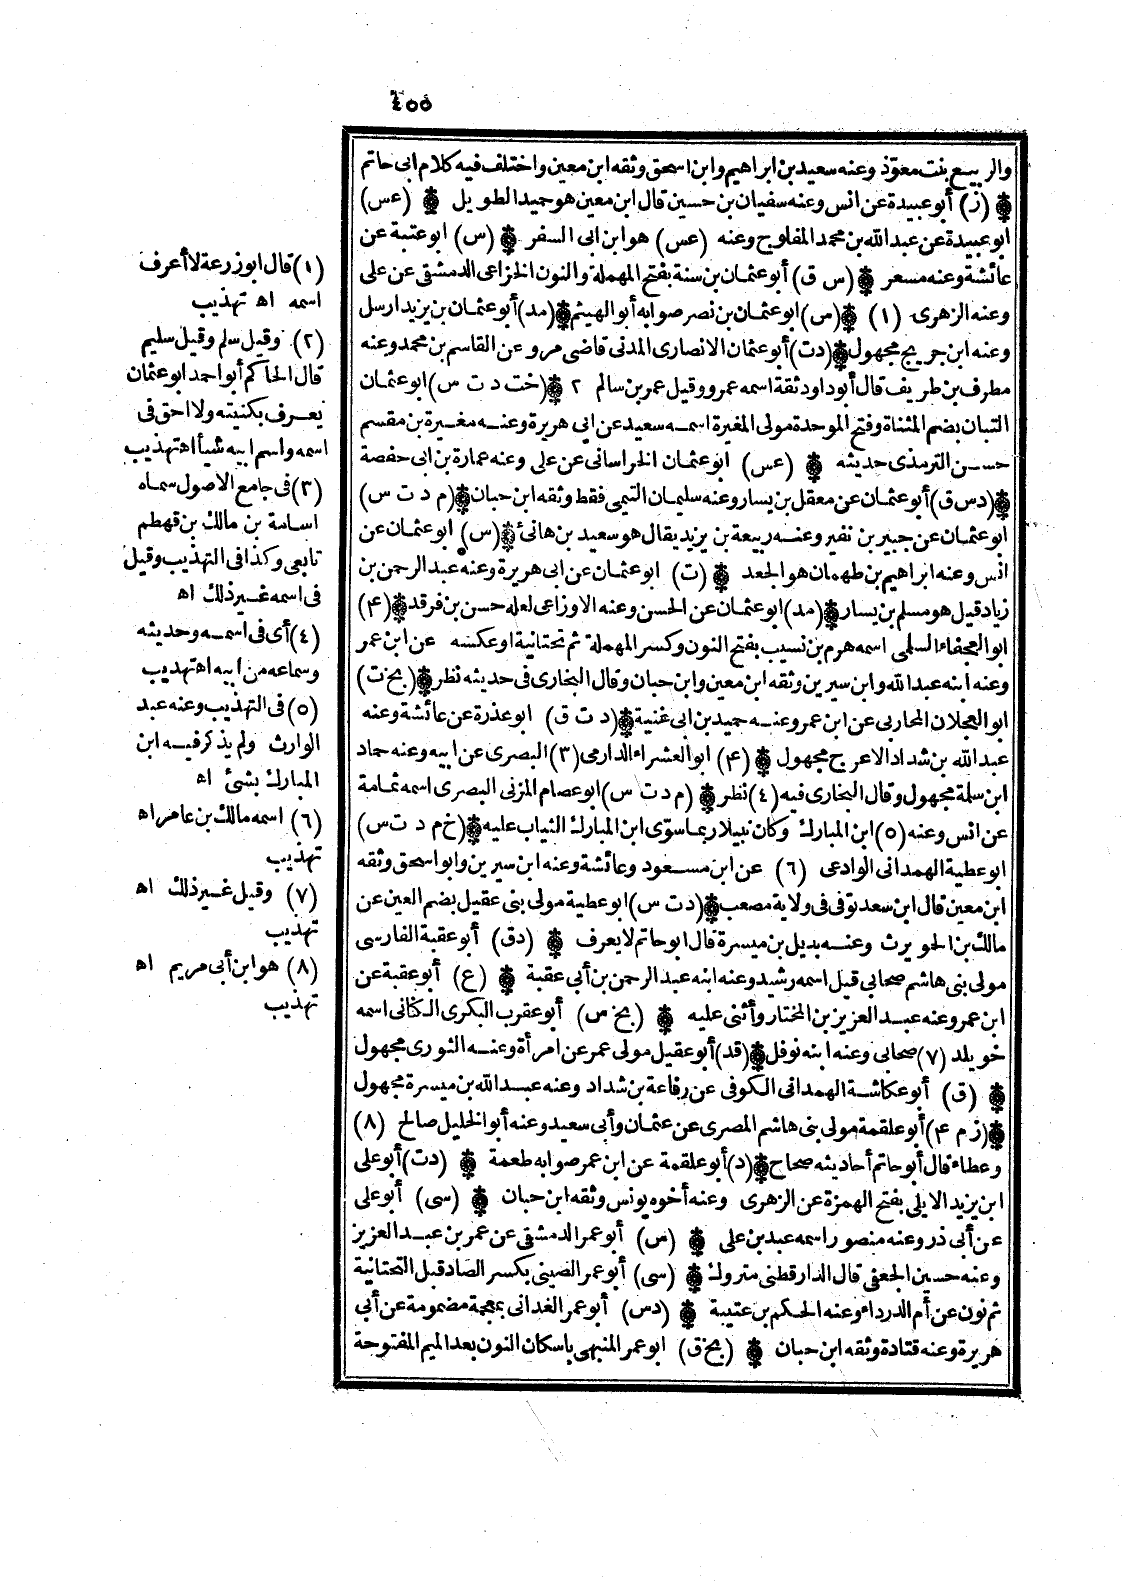 ٤٥٥
والربيع بنت معوّذ وعنه سعيد بن ابراهيم وابن اسحق وثقه ابن معين واختلف فيه كلام ابى حاتم
(ز) أبو عبيدة عن انس وعنه سفيان بن حسين قال ابن معين هو حميد الطويل (عس)
ابو عبيدة عن عبد الله بن محمد المفلوج وعنه (عس) هو ابن ابى السفر (س) ابو عتبة عن
عائشة وعنه مسعر (س ق) أبو عثمان بن سنة بفتح المهملة والنون الخزاعى الدمشقى عن على
وعنه الزهرى (١) (س) ابو عثمان بن نصر صوابه أبو الهيثم (مد) أبو عثمان بن يزيد ارسل
وعنه ابن جريج مجهول (دت) أبو عثمان الانصارى المدنى قاضى مرو عن القاسم بن محمد وعنه
مطرف بن طريف قال أبو داود ثقة اسمه عمرو وقيل عمر بن سالم ٢ (خت د ت س) ابو عثمان
التبان بضم المثناة وفتح الموحدة مولى المغيرة اسمه سعيد عن ابى هريرة وعنه مغيرة بن مقسم
حسن الترمذى حديثه (عس) ابو عثمان الخراسانى عن على وعنه عمارة بن ابى حفصة
(دس ق) أبو عثمان عن معقل بن يسار وعنه سليمان التيمى فقط وثقه ابن حبان (م د ت س)
ابو عثمان عن جبير بن نفير وعنه ربيعة بن يزيد يقال هو سعيد بن هانئ (س) ابو عثمان عن
انس وعنه ابراهيم بن طهمان هو الجعد (ت) ابو عثمان عن ابى هريرة وعنه عبد الرحمن بن
زياد قيل هو مسلم بن يسار (مد) ابو عثمان عن الحسن وعنه الاوزاعى لعله حسن بن فرقد (٤)
ابو العجفاء السلمى اسمه هرم بن نسيب بفتح النون وكسر المهملة ثم تحتانية او عكسه عن ابن عمر
وعنه ابنه عبد الله وابن سيرين وثقه ابن معين وابن حبان وقال البخارى فى حديثه نظر (بخ ت)
ابو العجلان المحاربى عن ابن عمر وعنه حميد بن ابى غنية (د ت ق) ابو عذرة عن عائشة وعنه
عبد الله بن شداد الاعرج مجهول (٤) ابو العشراء الدارمى (٣) البصرى عن ابيه وعنه حماد
ابن سلمة مجهول وقال البخارى فيه (٤) نظر (م د ت س) ابو عصام المزنى البصرى اسمه ثمامة
عن انس وعنه (٥) ابن المبارك وكان نبيلا ربما سوّى ابن المبارك الثياب عليه (خ م د ت س)
ابو عطية الهمدانى الوادعى (٦) عن ابن مسعود وعائشة وعنه ابن سيرين وابو اسحق وثقه
ابن معين قال ابن سعد توفى فى ولاية مصعب (د ت س) ابو عطية مولى بنى عقيل بضم العين عن
مالك بن الحويرث وعنه بديل بن ميسرة قال ابو حاتم لا يعرف (دق) أبو عقبة الفارسى
مولى بنى هاشم صحابى قيل اسمه رشيد وعنه ابنه عبد الرحمن بن أبى عقبة (ع) أبو عقبة عن
ابن عمر وعنه عبد العزيز بن المختار وأثنى عليه (بخ س) أبو عقرب البكرى الكنانى اسمه
خويلد (٧) صحابى وعنه ابنه نوفل (قد) أبو عقيل مولى عمر عن امرأة وعنه الثورى مجهول
(ق) أبو عكاشة الهمدانى الكوفى عن رفاعة بن شداد وعنه عبد الله بن ميسرة مجهول
(ز م ٤) أبو علقمة مولى بنى هاشم المصرى عن عثمان وأبى سعيد وعنه أبو الخليل صالح (٨)
وعطاء قال أبو حاتم أحاديثه صحاح (د) أبو علقمة عن ابن عمر صوابه طعمة (دت) أبو على
ابن يزيد الايلى بفتح الهمزة عن الزهرى وعنه أخوه يونس وثقه ابن حبان (سى) أبو على
عن أبى ذر وعنه منصور اسمه عبد بن على (س) أبو عمر الدمشقى عن عمر بن عبد العزيز
وعنه حسين الجعفى قال الدارقطنى متروك (سى) أبو عمر الصينى بكسر الصاد قبل التحتانية
ثم نون عن أم الدرداء وعنه الحكم بن عتيبة (دس) أبو عمر الغدانى بمعجمة مضمومة عن أبى
هريرة وعنه قتادة وثقه ابن حبان (بخ ق) ابو عمر المنبهى باسكان النون بعد الميم المفتوحة
(١) قال ابو زرعة لا أعرف
اسمه اه تهذيب
(٢) وقيل سلم وقيل سليم
قال الحاكم أبو احمد ابو عثمان
يعرف بكنيته ولا احق فى
اسمه واسم ابيه شيأ اه تهذيب
(٣) فى جامع الاصول سماه
اسامة بن مالك بن قهطم
تابعى وكذا فى التهذيب وقيل
فى اسمه غير ذلك اه
(٤) أى فى اسمه وحديثه
وسماعه من ابيه اه تهذيب
(٥) فى التهذيب وعنه عبد
الوارث ولم يذكر فيه ابن
المبارك بشئ اه
(٦) اسمه مالك بن عامر اه
تهذيب
(٧) وقيل غير ذلك اه
تهذيب
(٨) هو ابن أبى مريم اه
تهذيب